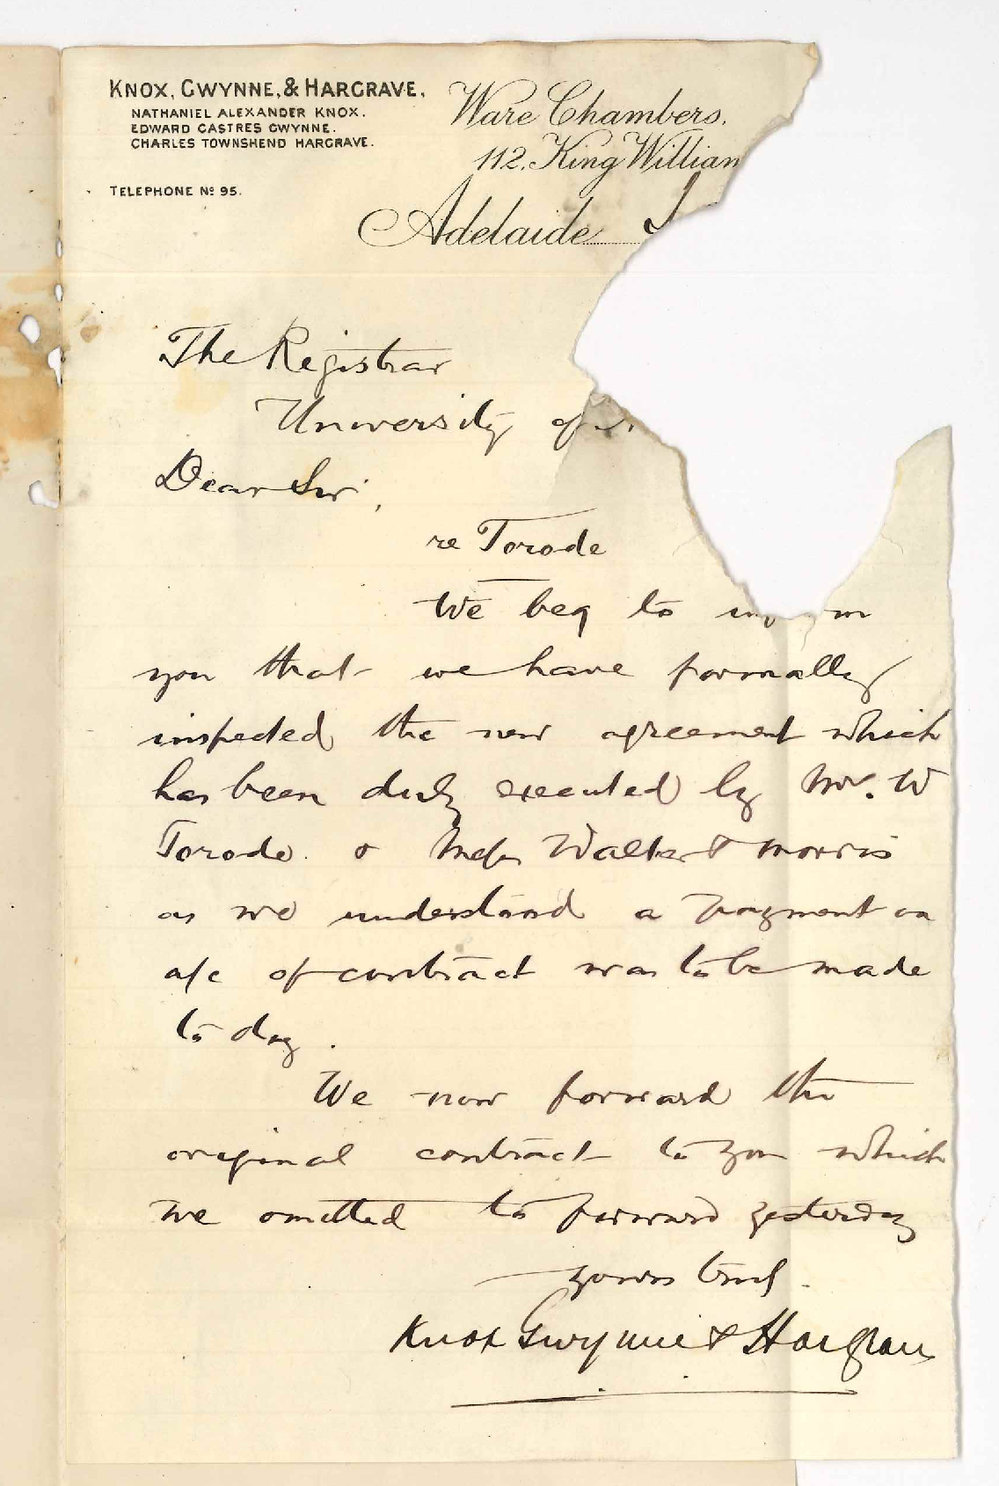 KNOX, GWYNNE, & HARGRAVE.
NATHANIEL ALEXANDER KNOX.
EDWARD CASTRES GWYNNE.
CHARLES TOWNSHEND HARGRAVE.
TELEPHONE Nº 95.
Ware Chambers,
112, King William
Adelaide
The Registrar
University of
Dear Sir,
re Torode
We beg to inform
you that we have formally
inspected the new agreement which
has been duly executed by Mr. W
Torode & Messrs Walter & Morris
as we understand a payment on
a/c of contract was to be made
to day.
We now forward the
original contract to you which
we omitted to forward yesterday
yours truly.
Knox Gwynne & Hargrave